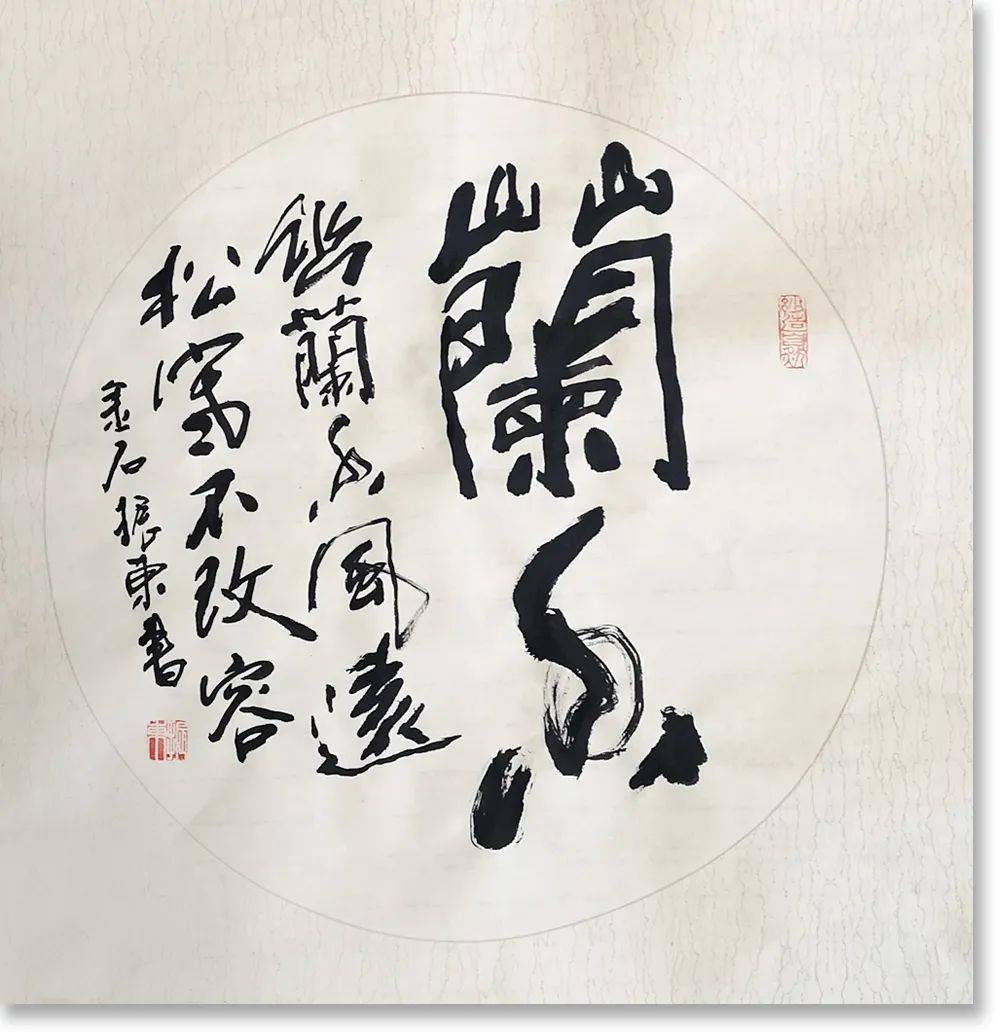 蘭香
蘭香風遠
松寒不改容
金石振東書
振東